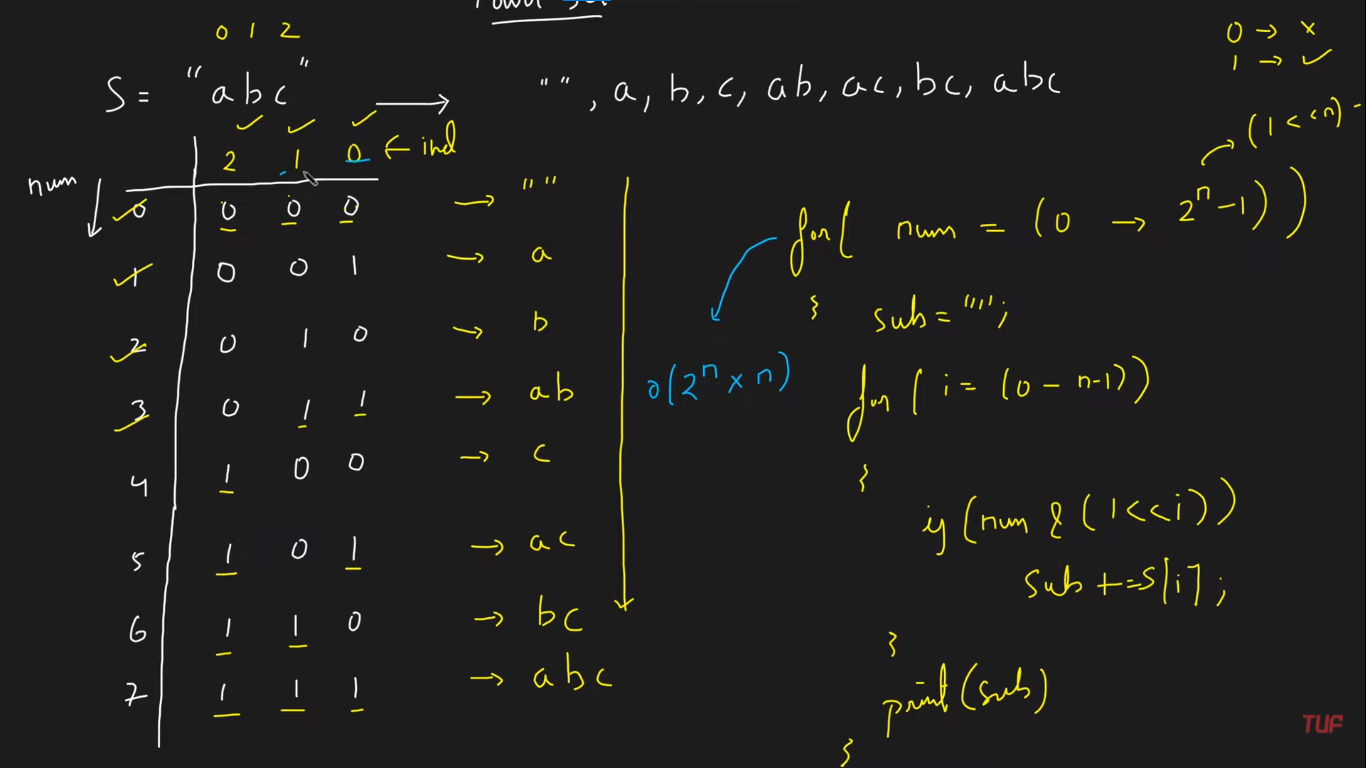 Power Set
0 1 2
S = "abc" → "", a, b, c, ab, ac, bc, abc
0 → ×
1 → ✓
2 1 0 ← ind
num
(1<<n) -
0 0 0 0 → ""
1 0 0 1 → a
2 0 1 0 → b
3 0 1 1 → ab
4 1 0 0 → c
5 1 0 1 → ac
6 1 1 0 → bc
7 1 1 1 → abc
O(2^n × n)
for( num = (0 → 2^n - 1))
{ sub = "";
for( i = (0 - n-1))
{
if (num & (1<<i))
sub += S[i];
}
print(sub)
}
TUF